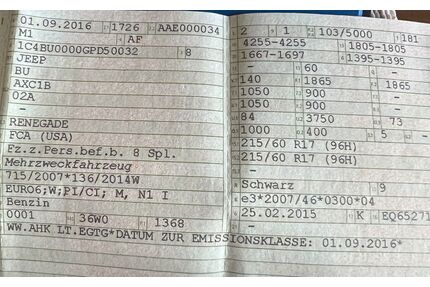 01.09.2016 1726 AAE000034
M1 AF
1C4BU0000GPD50032 8
JEEP
BU
AXC1B
02A
-
RENEGADE
FCA (USA)
Fz.z.Pers.bef.b. 8 Spl.
Mehrzweckfahrzeug
715/2007*136/2014W
EURO6;W;PI/CI; M, N1 I
Benzin
0001 36W0 1368
WW.AHK LT.EGTG*DATUM ZUR EMISSIONSKLASSE: 01.09.2016*
2 1 103/5000 181
4255-4255 1805-1805
1667-1697 1395-1395
- 60 -
140 1865 1865
1050 900 -
1050 900 -
84 3750 73
1000 400 5 -
215/60 R17 (96H)
215/60 R17 (96H)
-
Schwarz 9
e3*2007/46*0300*04
25.02.2015 K EQ65271